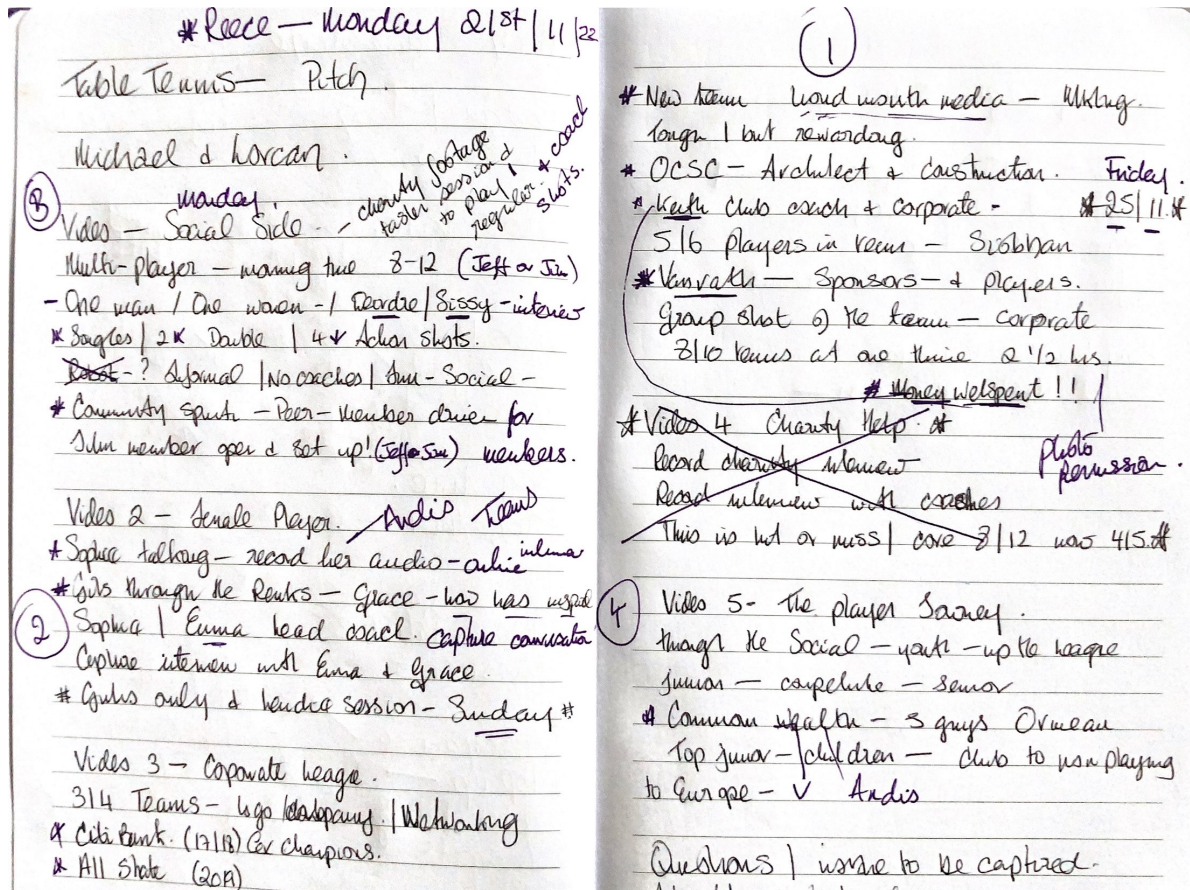 * Reece — Monday 21st/11/22
Table Tennis — Pitch.
Michael & Lorcan.
Monday.
charity footage
taster session &
to play,
regular + coach
shots.
3
Video — Social Side -
Multi-player — time 8-12 (Jeff or Jim)
- One man / One women - / Deirdre / Sissy - interview
* Singles / 2 * Double / 4 * Action shots.
Robot - ? Informal / No coaches / fun - Social -
* Community sports - Peer - Member driven for
member open & set up! (Jeff or Jim) members.
Video 2 — female Player. Andis Teams
* Sophia talking — record her audio - online
* Girls through the Ranks — Grace - how has
2
Sophia / Emma head coach. Capture conversation
Capture interview with Emma & Grace.
* Girls only & session - Sunday *
Video 3 — Coporate League.
3/4 Teams - logo / company. / Networking
* Citi Bank. (17/18) champions.
* All State (2019)
1
* New team Loud mouth media —
Tough / but rewarding.
* OCSC — Architect & Construction. Friday.
* Keith club coach & corporate - * 25/11. *
5/6 players in team — Siobhan
* Vanrath — Sponsors — & players.
Group shot of the team — corporate
8/10 teams at one time 2 1/2 hrs.
* Money welspent !!
* Video 4 Charity Help. *
photo
permission.
Record charity interview
Record interview with coaches
This is hit or miss / core 8/12 now 4/5. *
4
Video 5 - The player Journey.
through the Social — youth — up the league
junior — — senior
* Common wealth — 3 guys Ormeau
Top junior — / children — club to playing
to Europe - V Andis
Questions / to be captured.